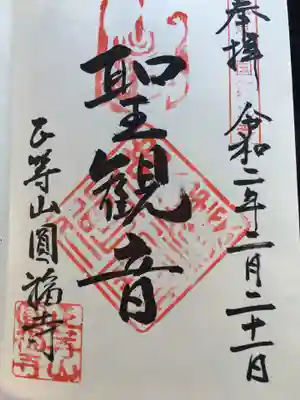 奉拝
令和二年二月二十一日
聖観音
正等山圓福寺